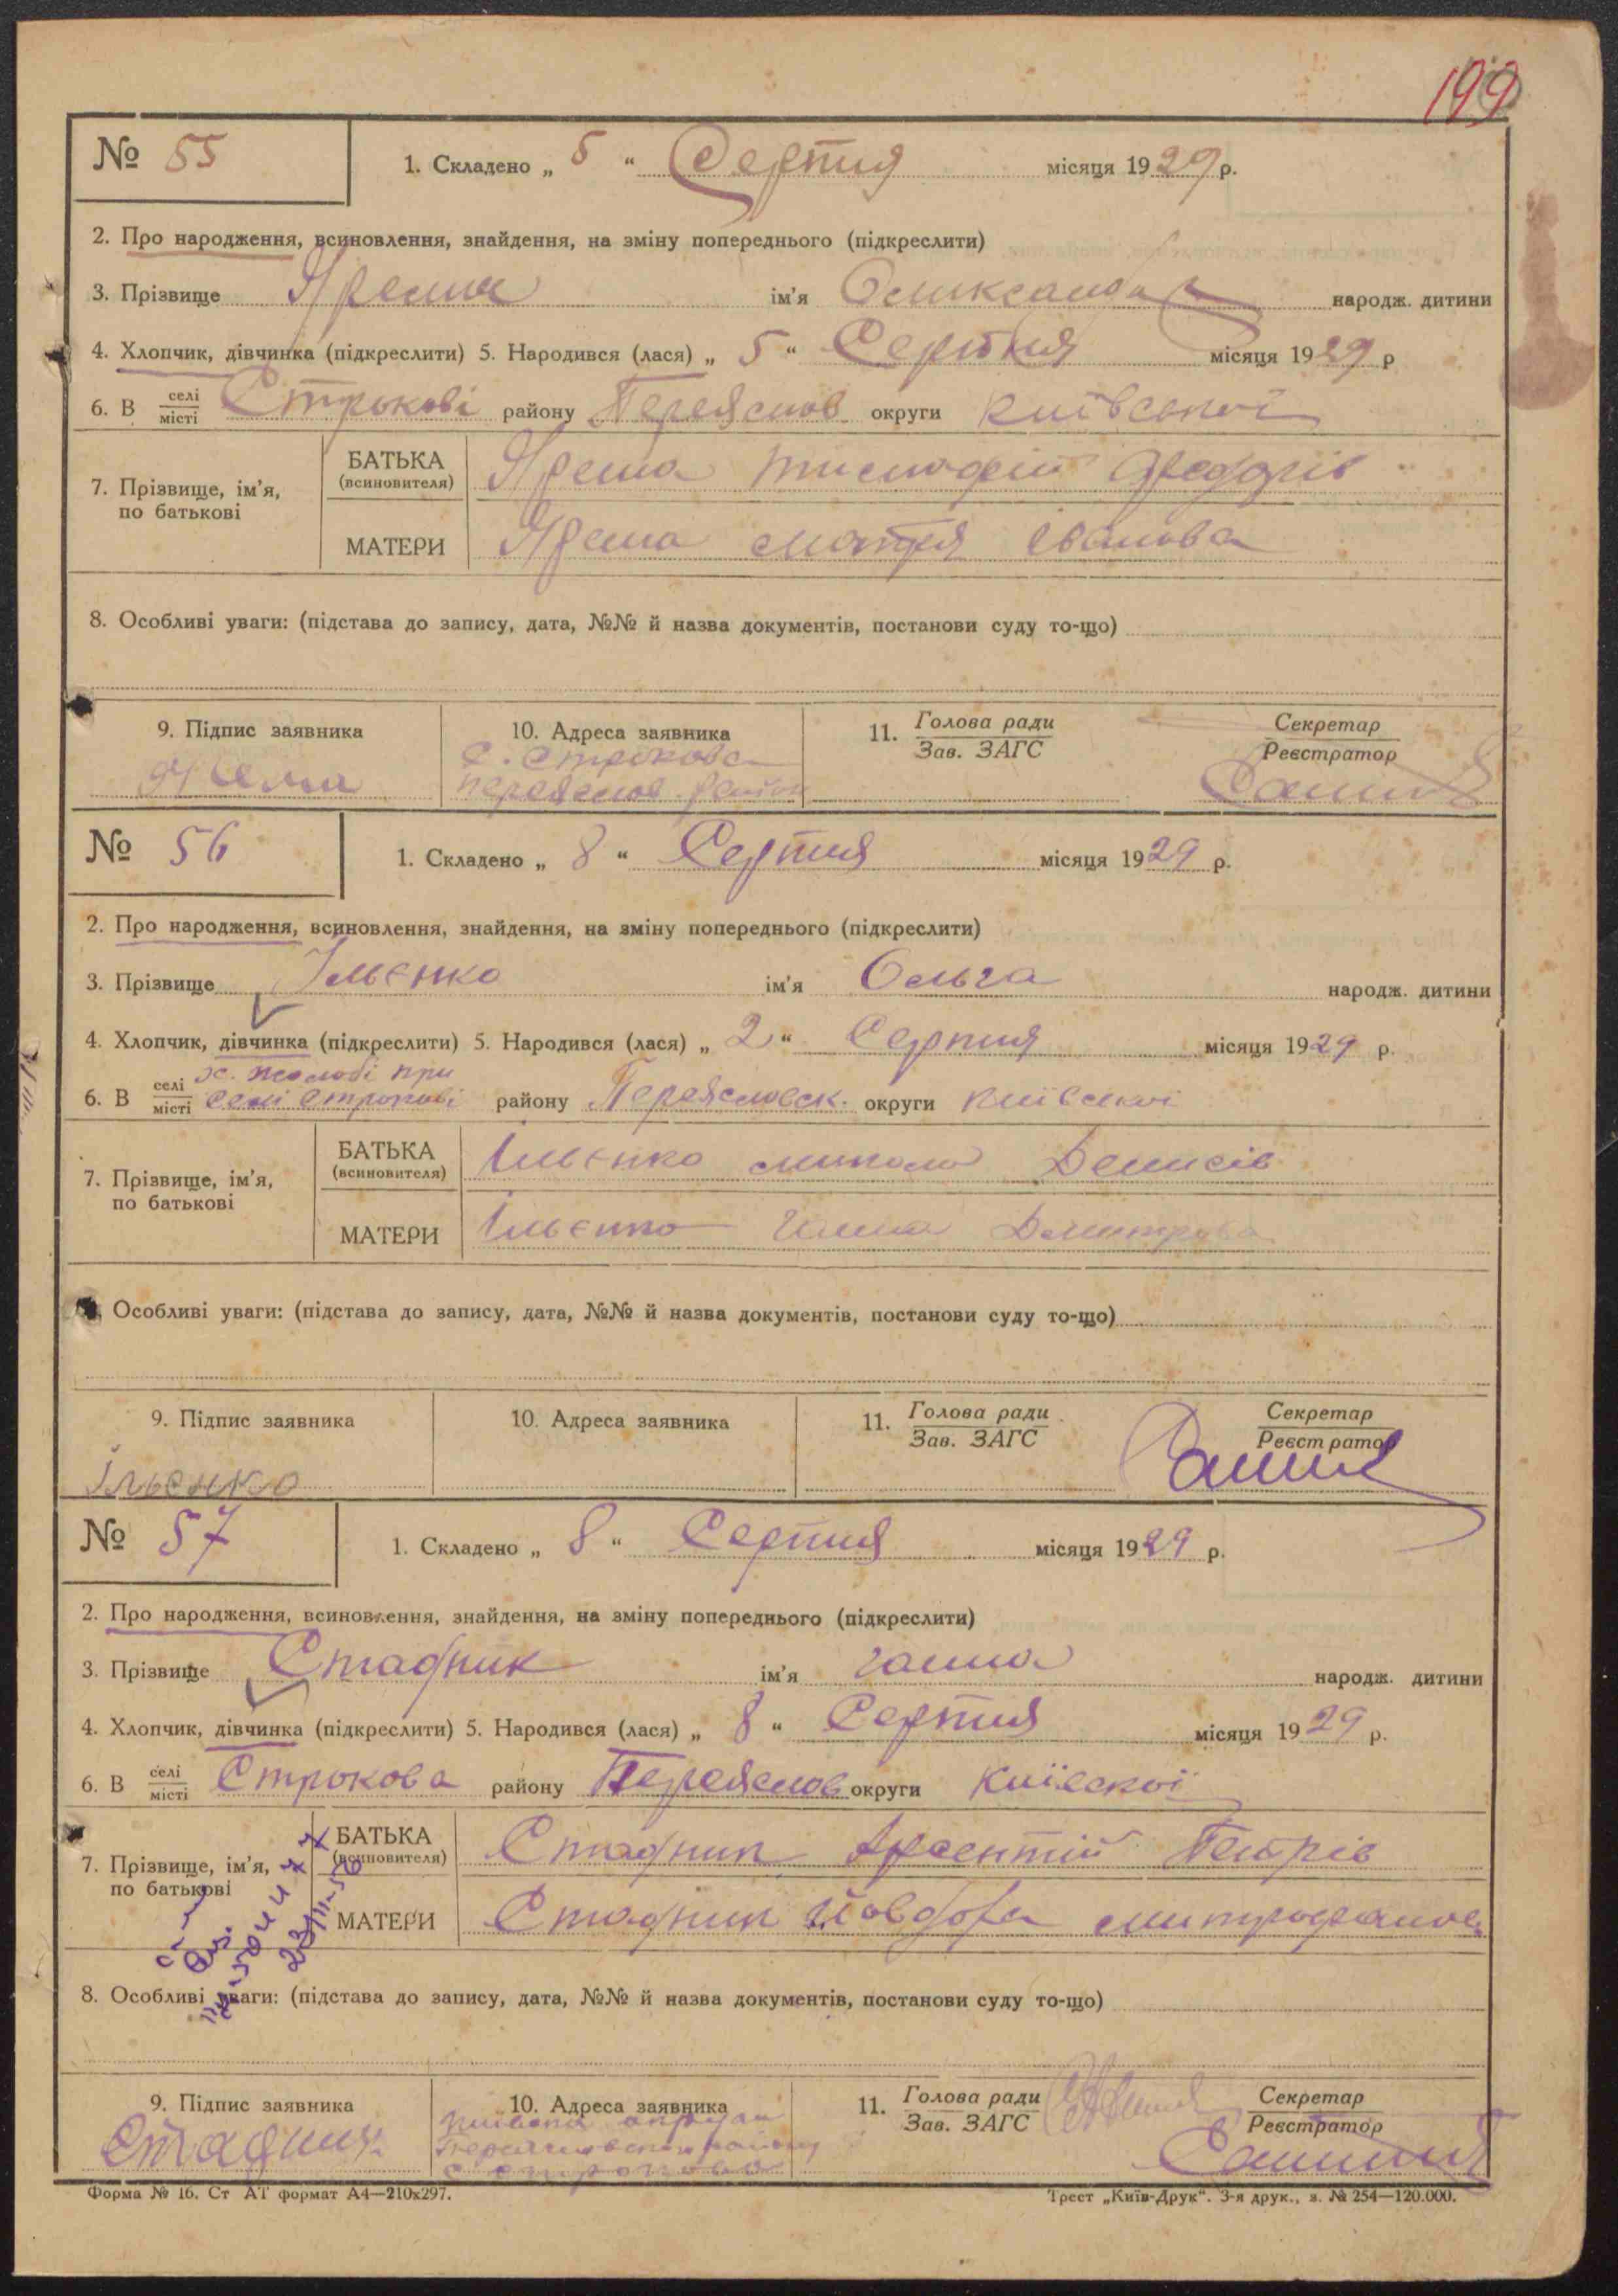 199
№ 55 1. Складено „ 5 “ Серпня місяця 1929 р.
2. Про народження, всиновлення, знайдення, на зміну попереднього (підкреслити)
3. Прізвище Ярема ім'я народж. дитини
4. Хлопчик, дівчинка (підкреслити) 5. Народився (лася) „ 5 “ Серпня місяця 1929 р
6. В селі/місті Строкові району Переяслов округи Київської
7. Прізвище, ім'я, по батькові
БАТЬКА (всиновителя) Ярема Федорів
МАТЕРИ Ярема Мотря Іванова
8. Особливі уваги: (підстава до запису, дата, №№ й назва документів, постанови суду то-що)
9. Підпис заявника 10. Адреса заявника 11. Голова ради/Зав. ЗАГС Секретар/Реєстратор
с. Строкова
Переяслов район
№ 56 1. Складено „ 8 “ Серпня місяця 1929 р.
2. Про народження, всиновлення, знайдення, на зміну попереднього (підкреслити)
3. Прізвище Ільєнко ім'я Ольга народж. дитини
4. Хлопчик, дівчинка (підкреслити) 5. Народився (лася) „ 2 “ Серпня місяця 1929 р.
6. В селі/місті х. при
селі Строкові району Переясловск. округи Київської
7. Прізвище, ім'я, по батькові
БАТЬКА (всиновителя) Ільєнко Микола Денисів
МАТЕРИ Ільєнко Ганна Дмитрова
Особливі уваги: (підстава до запису, дата, №№ й назва документів, постанови суду то-що)
9. Підпис заявника 10. Адреса заявника 11. Голова ради/Зав. ЗАГС Секретар/Реєстратор
Ільєнко
№ 57 1. Складено „ 8 “ Серпня місяця 1929 р.
2. Про народження, всиновлення, знайдення, на зміну попереднього (підкреслити)
3. Прізвище Стадник ім'я Ганна народж. дитини
4. Хлопчик, дівчинка (підкреслити) 5. Народився (лася) „ 8 “ Серпня місяця 1929 р.
6. В селі/місті Строкова району Переяслов округи Київскої
7. Прізвище, ім'я, по батькові
БАТЬКА (всиновителя) Стадник Арсентій Петрів
МАТЕРИ Стадник Йовдоха Митрофанов
8. Особливі уваги: (підстава до запису, дата, №№ й назва документів, постанови суду то-що)
9. Підпис заявника 10. Адреса заявника 11. Голова ради/Зав. ЗАГС Секретар/Реєстратор
Стадник
Форма № 16. Ст АТ формат А4—210х297. Трест „Київ-Друк“. 3-я друк., з. № 254—120.000.